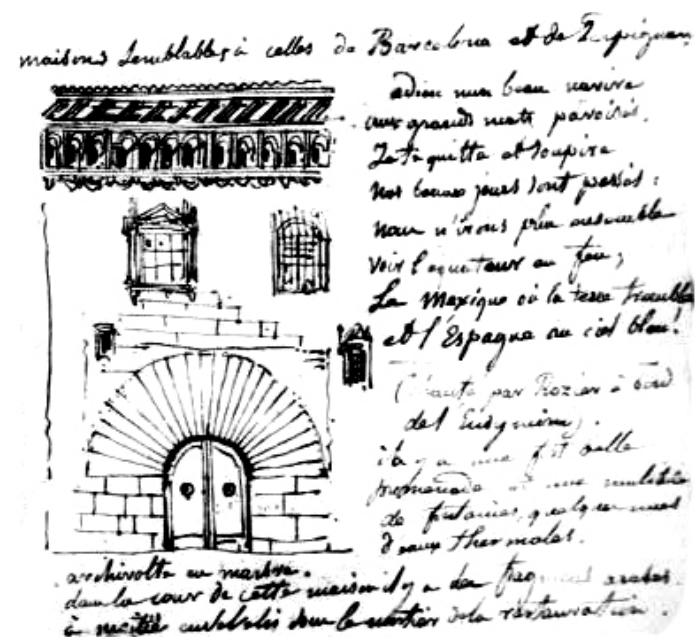 maisons semblables à celles de Barcelone et de Perpignan
adieu mon beau navire
aux grands mats pavoisés.
Je te quitte et soupire
nos beaux jours sont passés;
nous n'irons plus ensemble
voir l'equateur en feu,
Le Mexique où la terre tremble
et l'Espagne au ciel bleu.
(Chanté par Rozier à bord
de l'
il y a une fort belle
promenade et une multitude
de fontaines, quelques unes
d'eaux thermales.
archivolte en marbre.
dans la cour de cette maison il y a des fragments arabes
à moitié embellis dans le mortier de la restauration.